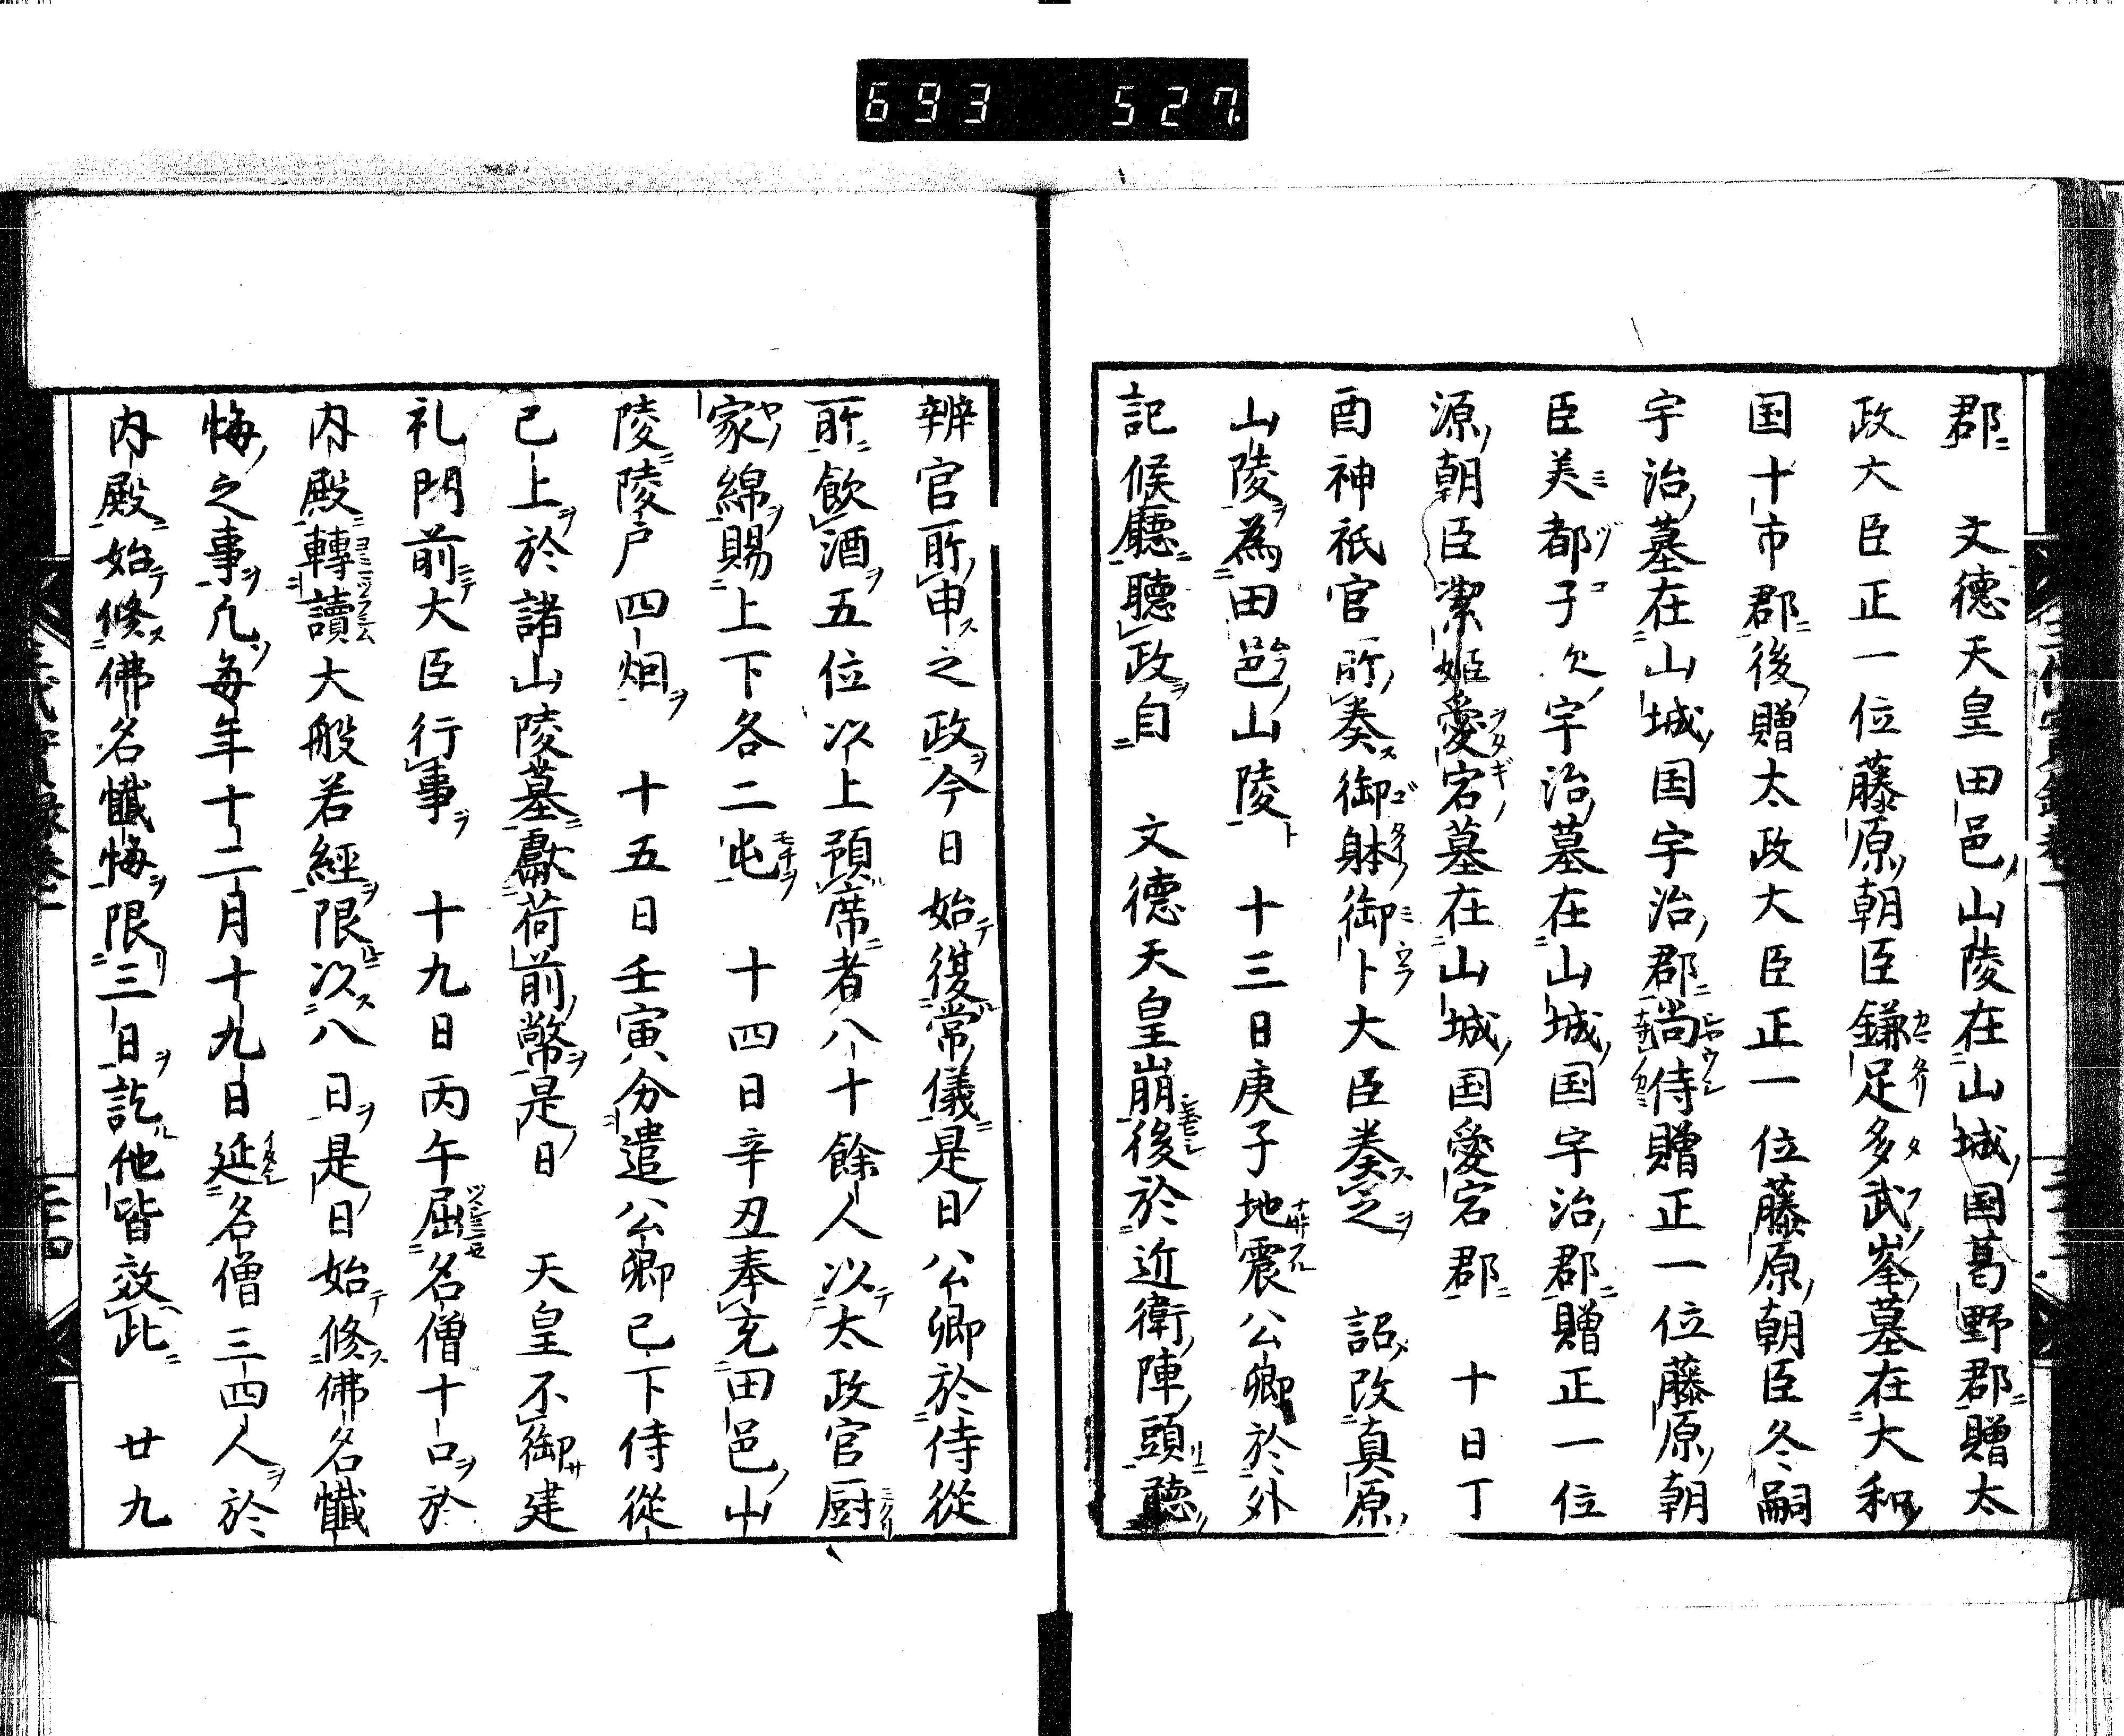 693 527
郡 文德天皇田邑山陵在山城国葛野郡贈太
政大臣正一位藤原朝臣鎌足多武峯墓在大和
国十市郡後贈太政大臣正一位藤原朝臣冬嗣
宇治墓在山城国宇治郡尚侍贈正一位藤原朝
臣美都子次宇治墓在山城国宇治郡贈正一位
源朝臣潔姬愛宕墓在山城国愛宕郡 十日丁
酉神祇官所奏御躰御卜大臣奏之 詔改真原
山陵為田邑山陵 十三日庚子地震公卿於外
記候廳聽政自 文德天皇崩後於近衛陣頭聽
辨官所申之政今日始復常儀是日公卿於侍從
所飲酒五位以上預席者八十餘人以太政官厨
家綿賜上下各二屯 十四日辛丑奉充田邑山
陵陵戸四烟 十五日壬寅分遣公卿已下侍從
已上於諸山陵墓獻荷前幣是日 天皇不御建
礼門前大臣行事 十九日丙午屈名僧十口於
内殿轉讀大般若經限以八日是日始修佛名懺
悔之事凡每年十二月十九日延名僧三四人於
内殿始修佛名懺悔限三日訖他皆效此 廿九